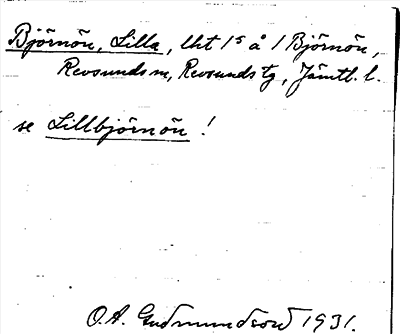 Björnön, Lilla, lht 1⁵ å 1 Björnön,
Revsunds sn, Revsunds tg, Jämtl. l.
se Lillbjörnön !
O.A. Gudmundsond 1931.